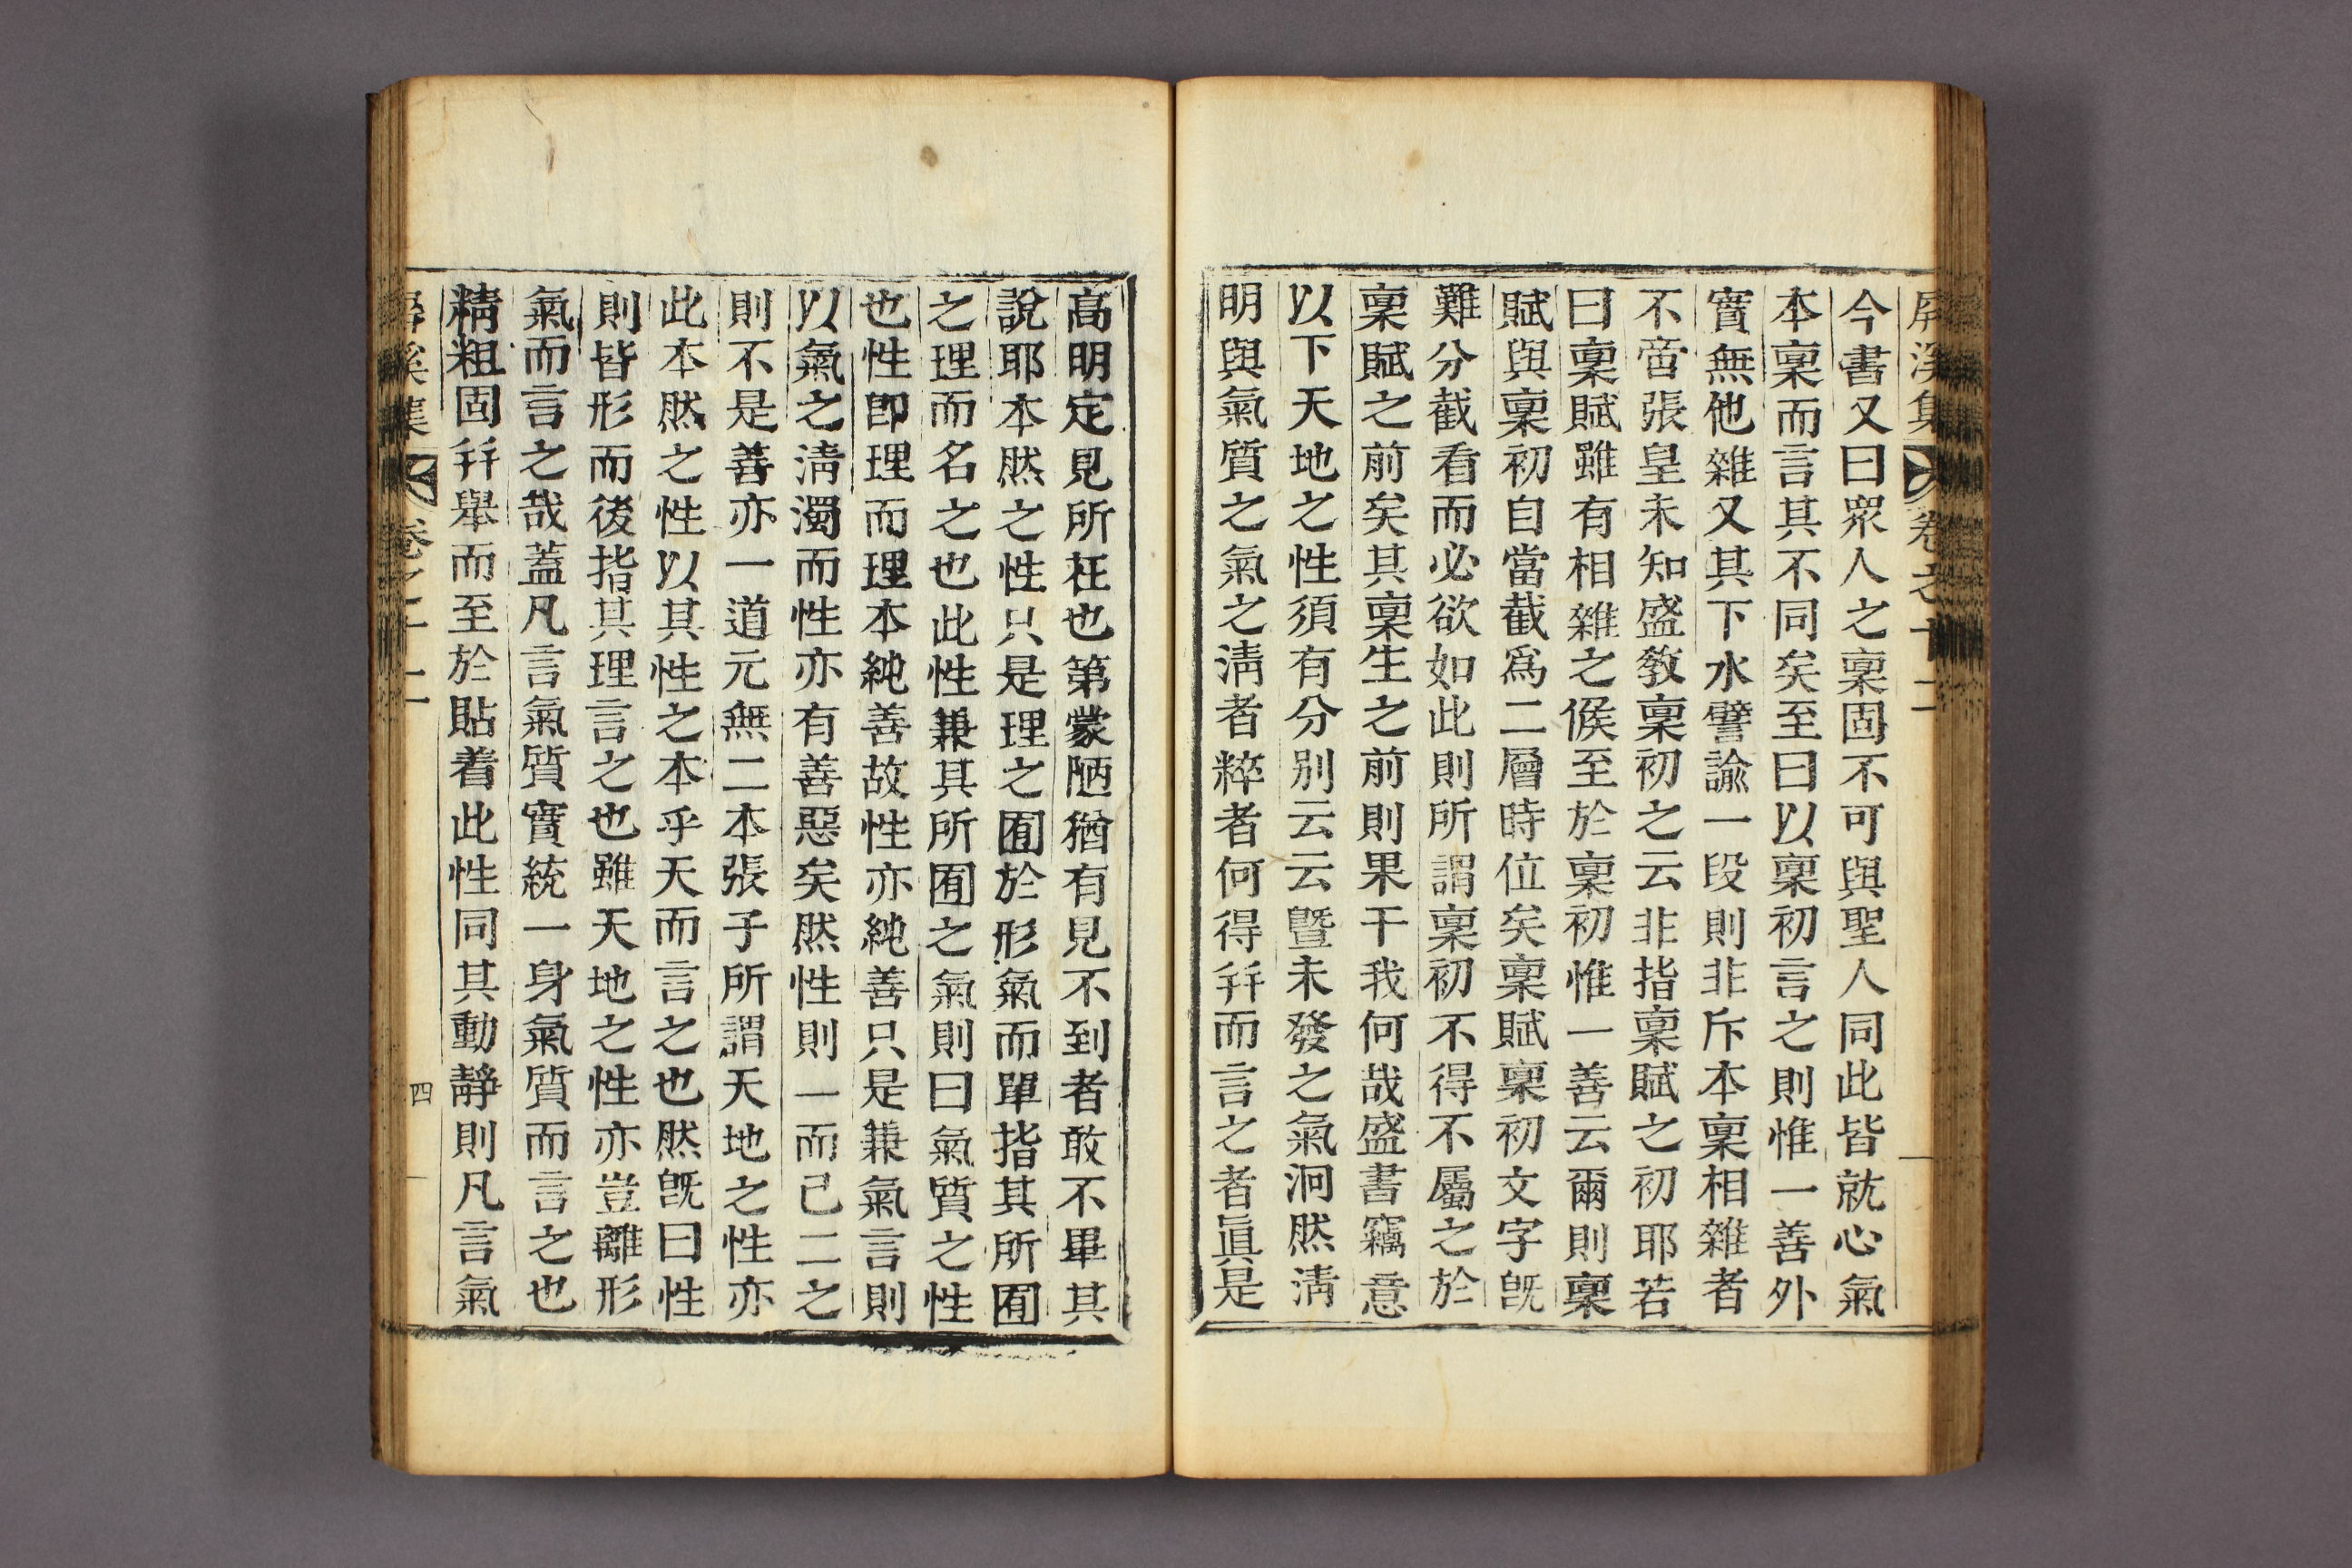 屏溪集 卷之十二
今書又曰衆人之稟固不可與聖人同此皆就心氣
本稟而言其不同矣至曰以稟初言之則惟一善外
實無他雜又其下水譬諭一段則非斥本稟相雜者
不啻張皇未知盛教稟初之云非指稟賦之初耶若
曰稟賦雖有相雜之候至於稟初惟一善云爾則稟
賦與稟初自當截爲二層時位矣稟賦稟初文字旣
難分截看而必欲如此則所謂稟初不得不屬之於
稟賦之前矣其稟生之前則果干我何哉盛書竊意
以下天地之性須有分別云云曁未發之氣洞然淸
明與氣質之氣之淸者粹者何得幷而言之者眞是
高明定見所在也第蒙陋猶有見不到者敢不畢其
說耶本然之性只是理之囿於形氣而單指其所囿
之理而名之也此性兼其所囿之氣則曰氣質之性
也性卽理而理本純善故性亦純善只是兼氣言則
以氣之淸濁而性亦有善惡矣然性則一而已二之
則不是善亦一道元無二本張子所謂天地之性亦
此本然之性以其性之本乎天而言之也然旣曰性
則皆形而後指其理言之也雖天地之性亦豈離形
氣而言之哉蓋凡言氣質實統一身氣質而言之也
精粗固幷擧而至於貼着此性同其動靜則凡言氣
屏溪集 卷之十二 四